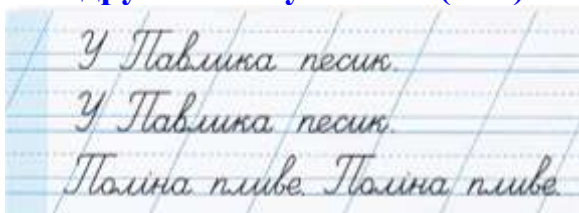 У Павлика песик.
У Павлика песик.
Поліна пливе. Поліна пливе.